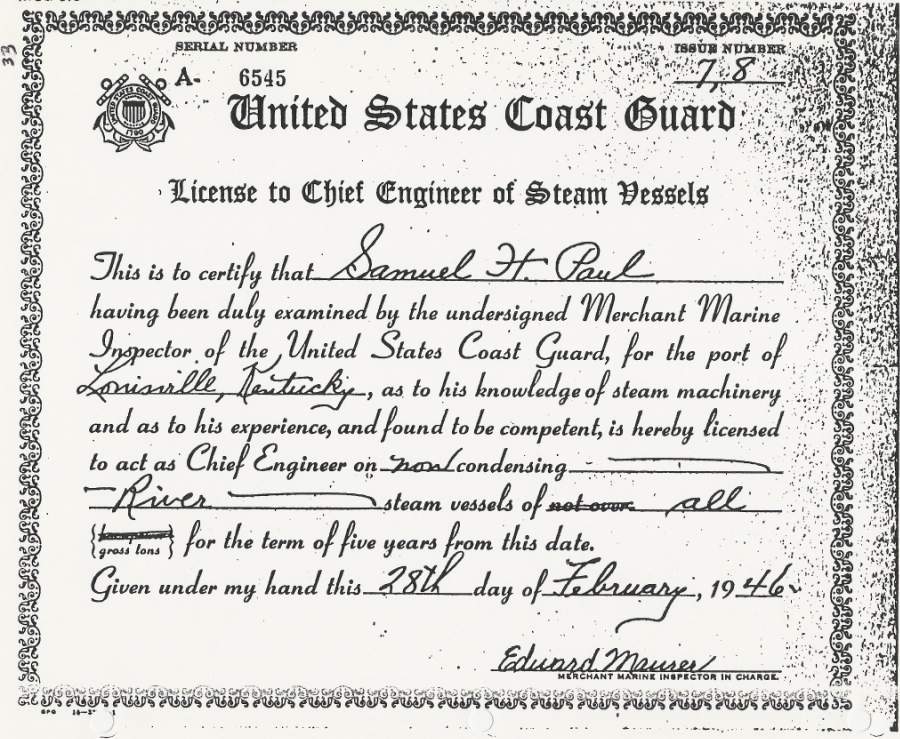 33
SERIAL NUMBER
ISSUE NUMBER
A- 6545
7, 8
UNITED STATES COAST GUARD
1790
United States Coast Guard
License to Chief Engineer of Steam Vessels
This is to certify that Samuel H. Paul
having been duly examined by the undersigned Merchant Marine
Inspector of the United States Coast Guard, for the port of
Louisville, Kentucky, as to his knowledge of steam machinery
and as to his experience, and found to be competent, is hereby licensed
to act as Chief Engineer on non condensing
River steam vessels of not over all
gross tons for the term of five years from this date.
Given under my hand this 28th day of February, 1946
Edward Maurer
MERCHANT MARINE INSPECTOR IN CHARGE.
GPO